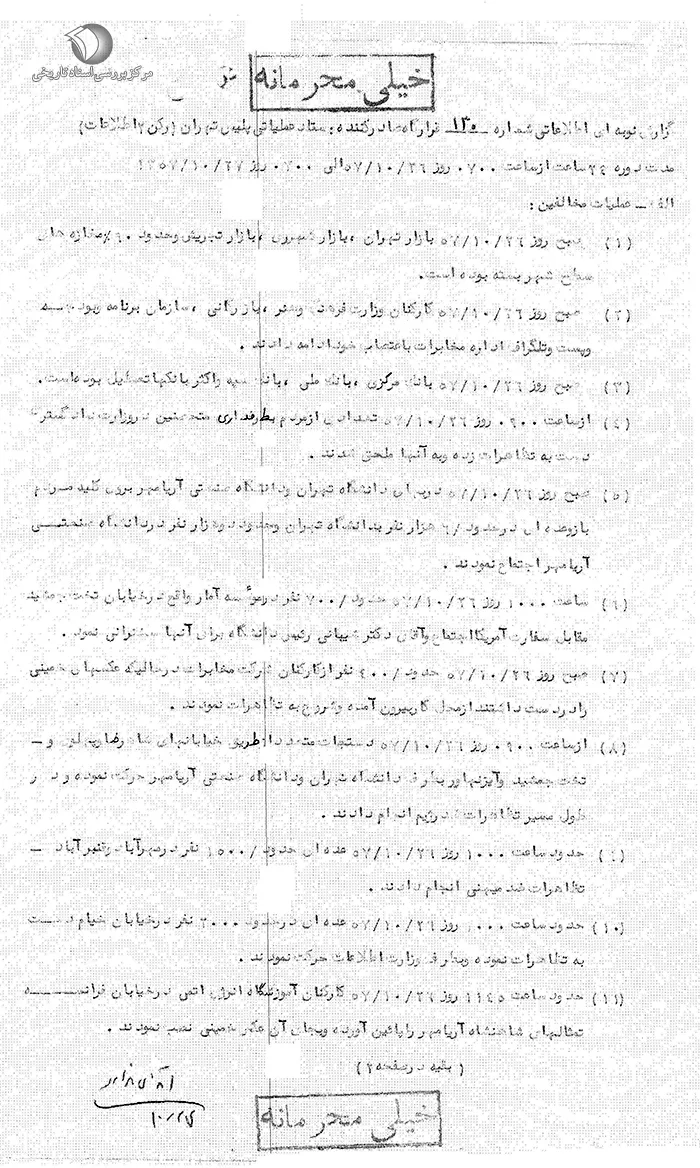 مرکز بررسی اسناد تاریخی
خیلی محرمانه
گزارش نوبه ای اطلاعاتی شماره ۱۳۰ قرارگاه صادرکننده : ستاد عملیاتی پلیس تهران (رکن ۲ اطلاعات)
مدت دوره ۲۴ ساعت از ساعت ۰۷۰۰ روز ۵۷/۱۰/۲۶ الی ۰۷۰۰ روز ۱۳۵۷/۱۰/۲۷
الف ـ عملیات مخالفین :
(۱) صبح روز ۵۷/۱۰/۲۶ بازار تهران ، بازار شهرری ، بازار تجریش وحدود ۶۰٪ مغازه های
سطح شهر بسته بوده است.
(۲) صبح روز ۵۷/۱۰/۲۶ کارکنان وزارت فرهنگ وهنر ، بازرگانی ، سازمان برنامه وبودجه
وپست وتلگراف اداره مخابرات باعتصاب خود ادامه دادند .
(۳) صبح روز ۵۷/۱۰/۲۶ بانک مرکزی ، بانک ملی ، بانک سپه واکثر بانکها تعطیل بوده است.
(۴) ازساعت ۰۹۰۰ روز ۵۷/۱۰/۲۶ تعدادی ازمردم بطرفداری متحصنین دروزارت دادگستری
دست به تظاهرات زده وبه آنها ملحق شدند .
(۵) صبح روز ۵۷/۱۰/۲۶ دربهای دانشگاه تهران ودانشگاه صنعتی آریامهر بروی کلیه مردم
بازوعده ای درحدود /۶ هزار نفر بدانشگاه تهران وحدود دوهزار نفر دردانشگاه صنعتی
آریامهر اجتماع نمودند .
(۶) ساعت ۱۰۰۰ روز ۵۷/۱۰/۲۶ حدود /۷۰۰ نفر درموٴسسه آمار واقع درخیابان تخت جمشید
مقابل سفارت آمریکا اجتماع وآقای دکتر شیبانی رئیس دانشگاه برای آنها سخنرانی نمود .
(۷) صبح روز ۵۷/۱۰/۲۶ حدود /۴۰۰ نفر ازکارکنان شرکت مخابرات درحالیکه عکسهای خمینی
رادردست داشتند ازمحل کاربیرون آمده وشروع به تظاهرات نمودند .
(۸) ازساعت ۰۹۰۰ روز ۵۷/۱۰/۲۶ دستجات متعدد ازطریق خیابانهای شاهرضا وپهلوی و ـ
تخت جمشید وآیزنهاور بطرف دانشگاه تهران ودانشگاه صنعتی آریامهر حرکت نموده و در
طول مسیر تظاهرات ضدرژیم انجام دادند .
(۹) حدود ساعت ۱۰۰۰ روز ۵۷/۱۰/۲۶ عده ای حدود /۱۵۰۰ نفر درمهرآباد ـ
تظاهرات ضد میهنی انجام دادند .
(۱۰) حدود ساعت روز ۵۷/۱۰/۲۶ عده ای درحدود ۲۰۰۰ نفر درخیابان خیام دست
به تظاهرات نموده وبطرف وزارت اطلاعات حرکت نمودند .
(۱۱) حدود ساعت ۱۱۴۵ روز ۵۷/۱۰/۲۶ کارکنان آموزشگاه انرژی اتمی درخیابان فرانسه
تمثالهای شاهنشاه آریامهر را پائین آورده وبجای آن عکس خمینی نصب نمودند .
( بقیه درصفحه ۲ )
خیلی محرمانه